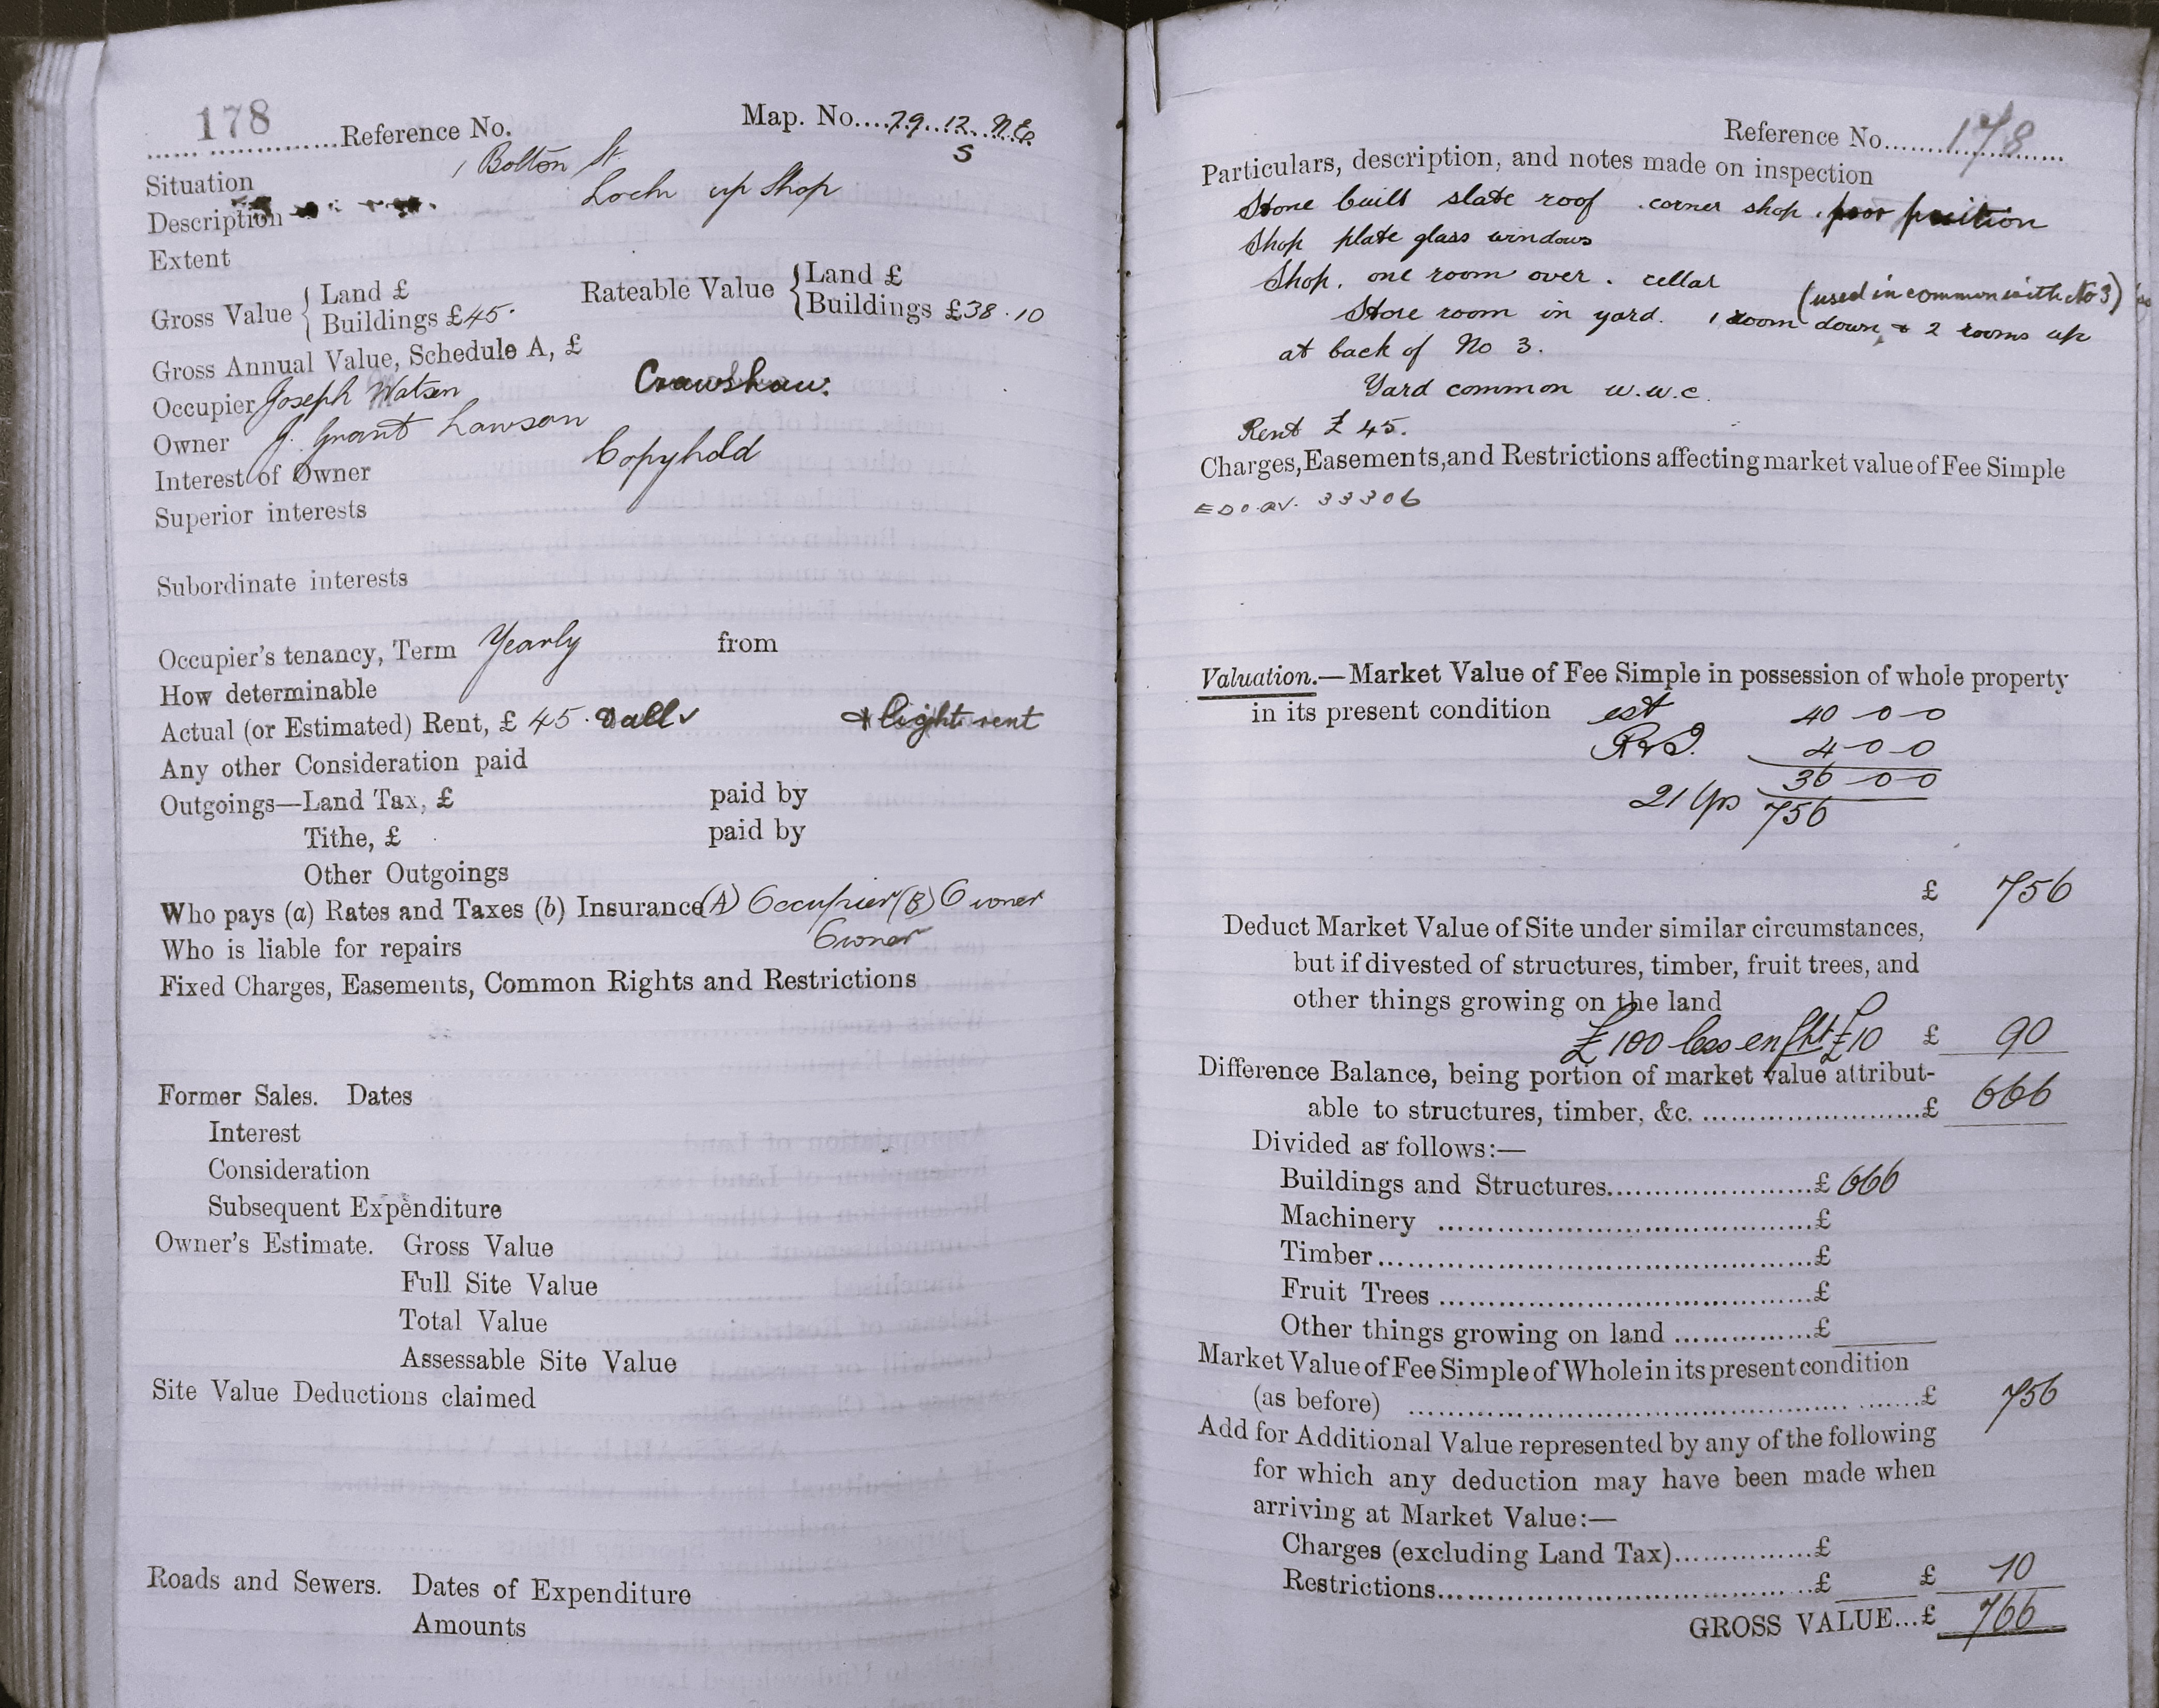 178 Reference No. Map. No. 79. 12. N.E.
S
Situation 1 Bolton St.
Description Lock up Shop
Extent
Gross Value { Land £
Buildings £45. Rateable Value { Land £
Buildings £38.10
Gross Annual Value, Schedule A, £
Occupier Joseph Watson Crawshaw.
Owner J. Grant Lawson
Interest of Owner Copyhold
Superior interests
Subordinate interests
Occupier's tenancy, Term Yearly from
How determinable
Actual (or Estimated) Rent, £ 45. light rent
Any other Consideration paid
Outgoings—Land Tax, £ paid by
Tithe, £ paid by
Other Outgoings
Who pays (a) Rates and Taxes (b) Insurance (A) Occupier (B) Owner
Who is liable for repairs Owner
Fixed Charges, Easements, Common Rights and Restrictions
Former Sales. Dates
Interest
Consideration
Subsequent Expenditure
Owner's Estimate. Gross Value
Full Site Value
Total Value
Assessable Site Value
Site Value Deductions claimed
Roads and Sewers. Dates of Expenditure
Amounts
Reference No. 178
Particulars, description, and notes made on inspection
Stone built slate roof . corner shop . poor position
Shop plate glass windows
Shop. one room over . cellar
(used in common with No 3)
Store room in yard. 1 room down, & 2 rooms up
at back of No 3.
Yard common w.w.c.
Rent £ 45.
Charges, Easements, and Restrictions affecting market value of Fee Simple
33306
Valuation.—Market Value of Fee Simple in possession of whole property
in its present condition est 40-0-0
R&I. 4-0-0
36-0-0
21 Yps 756
£ 756
Deduct Market Value of Site under similar circumstances,
but if divested of structures, timber, fruit trees, and
other things growing on the land
£100 less enfht £10 £ 90
Difference Balance, being portion of market value attribut-
able to structures, timber, &c. £ 666
Divided as follows:—
Buildings and Structures £ 666
Machinery £
Timber £
Fruit Trees £
Other things growing on land £
Market Value of Fee Simple of Whole in its present condition
(as before) £ 756
Add for Additional Value represented by any of the following
for which any deduction may have been made when
arriving at Market Value:—
Charges (excluding Land Tax) £
Restrictions £ £ 10
GROSS VALUE...£ 766